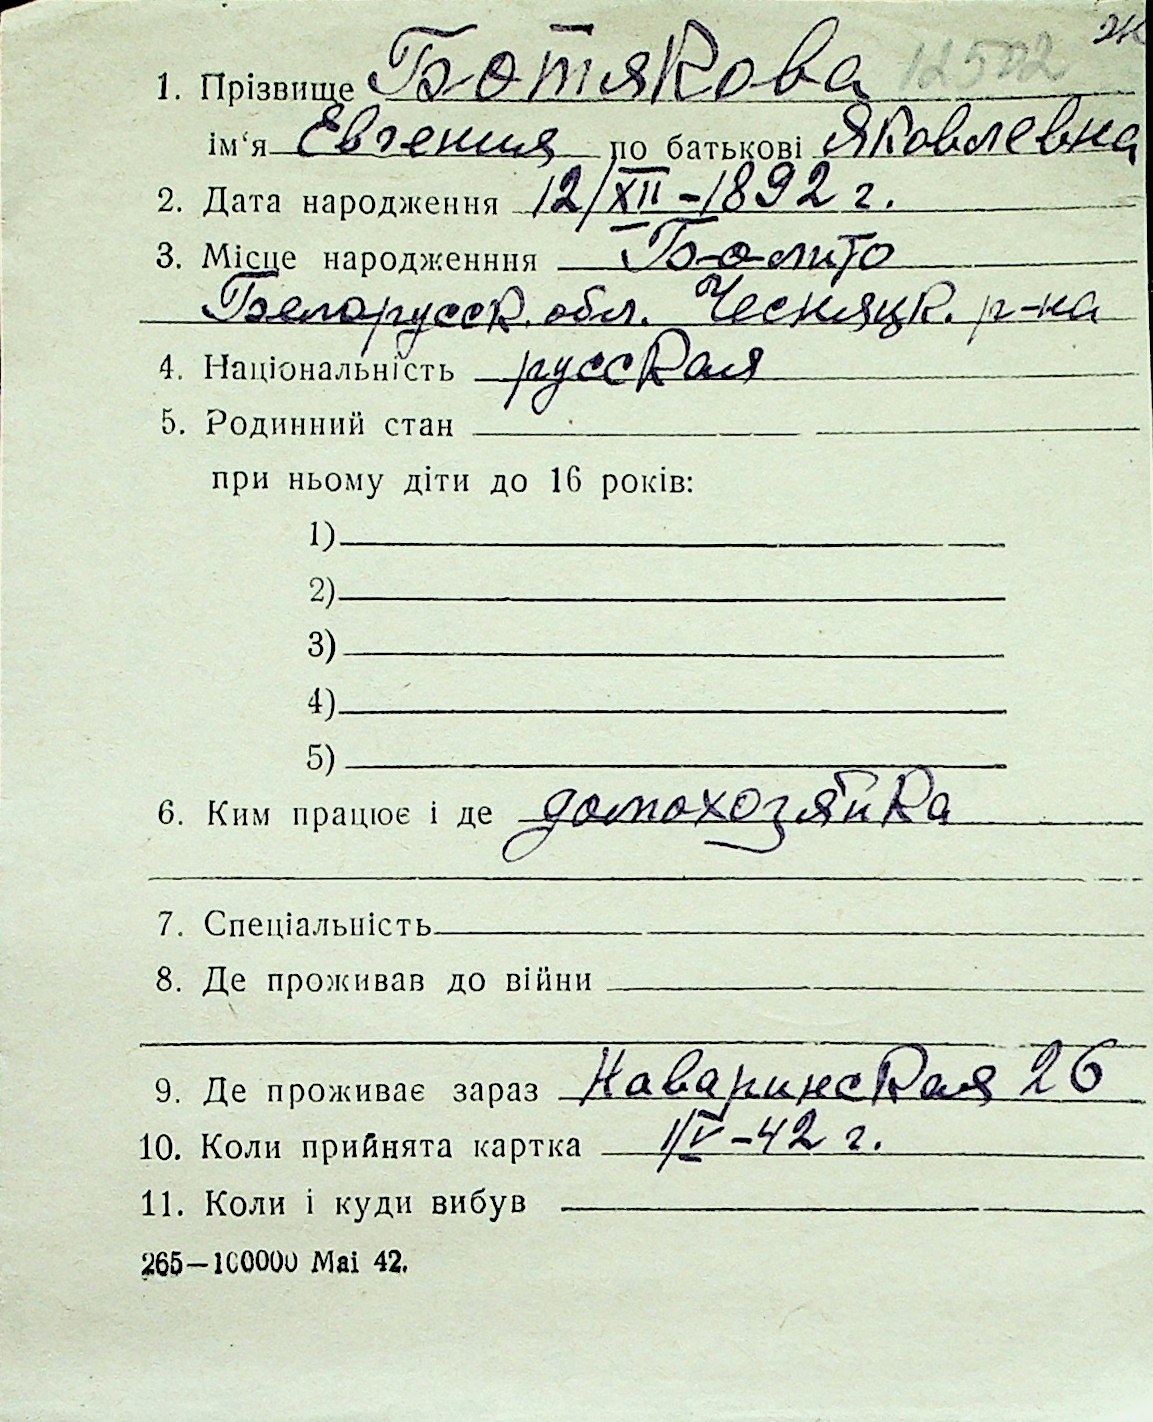 Ж
1. Прізвище Ботякова 12502
ім‘я Евгения по батькові Яковлевна
2. Дата народження 12/XII-1892 г.
3. Місце народженння
Белорусск. обл. Чесняцк. р-на
4. Національність русская
5. Родинний стан
при ньому діти до 16 років:
1)
2)
3)
4)
5)
6. Ким працює і де домохозяйка
7. Спеціальність
8. Де проживав до війни
9. Де проживає зараз Наваринская 26
10. Коли прийнята картка 1/V-42 г.
11. Коли і куди вибув
265—100000 Mai 42.